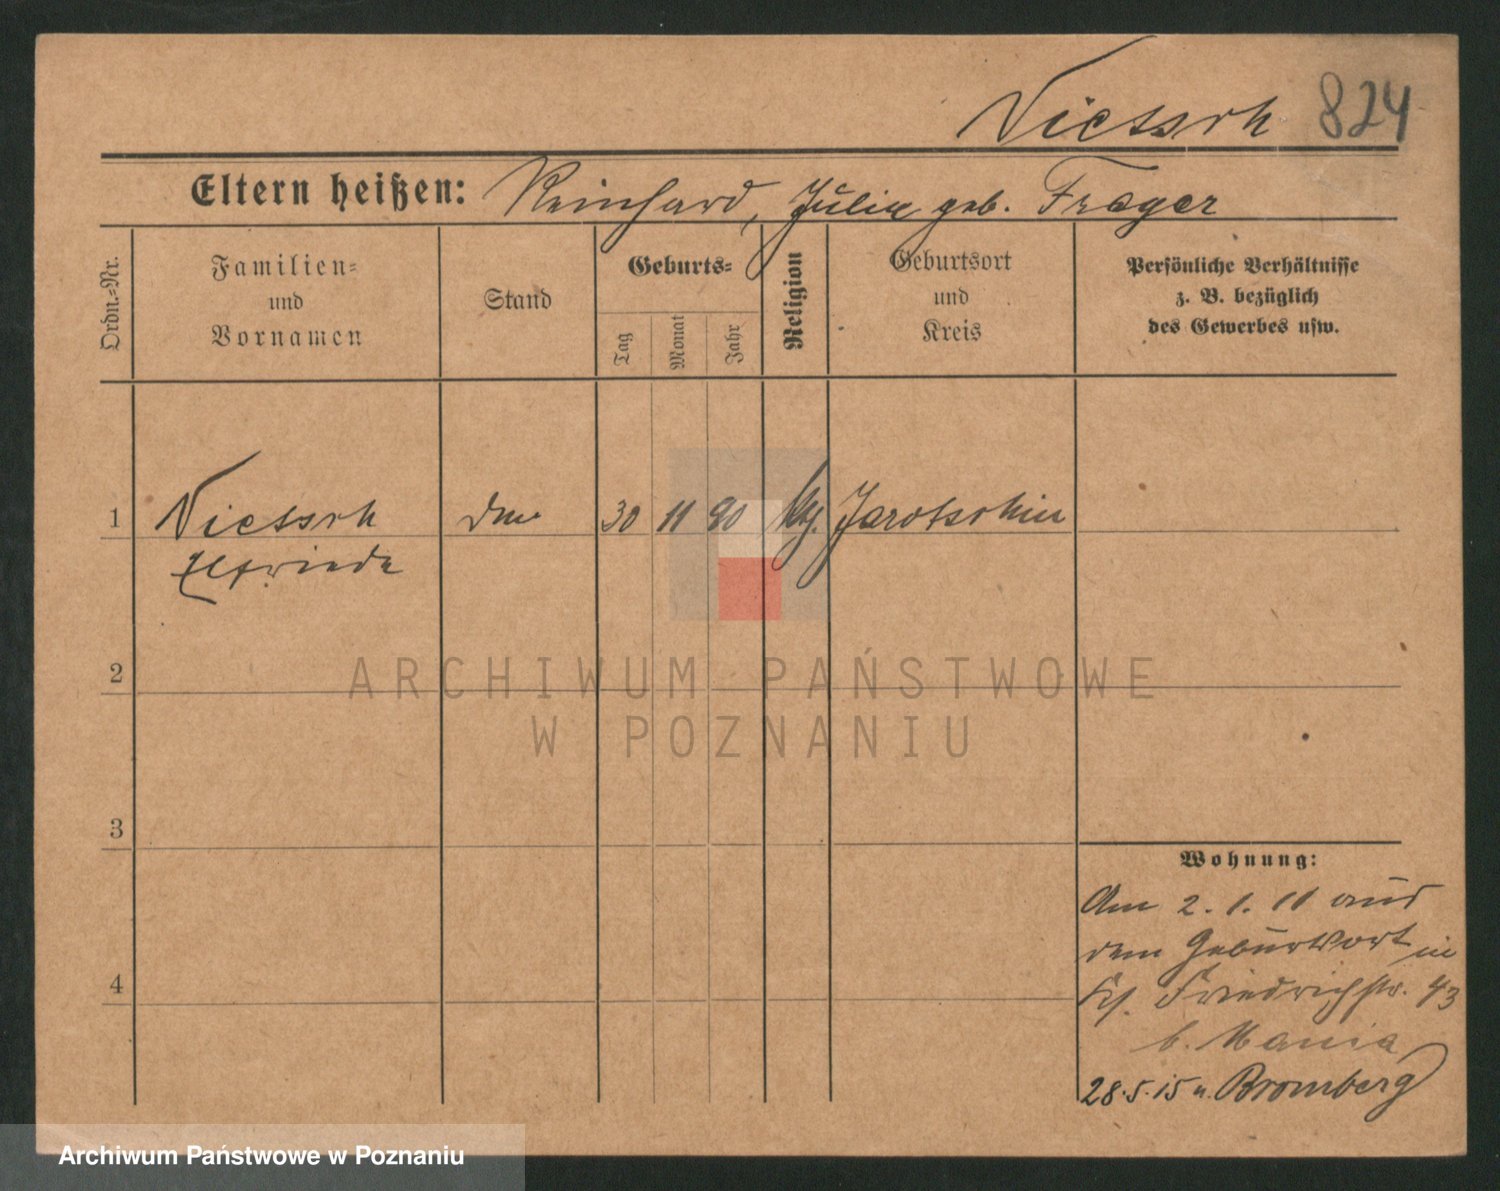 Nietsch 824
Eltern heißen: Reinhard, Julia geb. Trager
Ordn.-Nr.
Familien-
und
Vornamen
Stand
Geburts-
Tag
Monat
Jahr
Religion
Geburtsort
und
Kreis
Persönliche Verhältnisse
z. B. bezüglich
des Gewerbes usw.
1 Nietsch 30 11 90 Jarotschin
Elfriede
ARCHIWUM PAŃSTWOWE
W POZNANIU
2
3
4
Wohnung:
Am 2. 1. 11 aus
dem Geburtsort in
Friedrichstr. 43
b. Mania
28.5.15 n. Bromberg
Archiwum Państwowe w Poznaniu